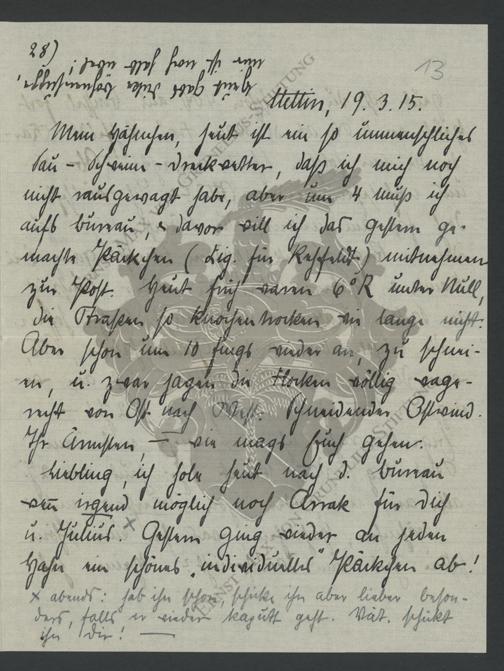 28)
13
Stettin, 19.3.15.
Mein Hähnchen, heut ist ein so unmenschliches
Sau-Schweine-Dreckwetter, daß ich mich noch
nicht rausgewagt habe, aber um 4 muß ich
aufs Bureau, u. davor will ich das gestern ge-
machte Päckchen (Zig. für Rehfeldt) mitnehmen
zur Post. Heut früh waren 6°R unter Null,
die Straßen so knochentrocken wie lange nicht.
Aber schon um 10 fings wieder an, zu schnei-
en, u. zwar jagen die Flocken völlig wage-
recht von Ost nach West. Schneidender Ostwind.
Ihr Ärmsten, — wie mags Euch gehen.
Liebling, ich hole heut nach d. Bureau
wenn irgend möglich noch Arrak für Dich
u. Julius. x Gestern ging wieder an jeden
Hahn ein schönes „individuelles" Päckchen ab!
x abends: hab ihn schon, schicke ihn aber lieber beson-
ders, falls er wieder kaputt geht. Vat. schickt
ihn Dir! —